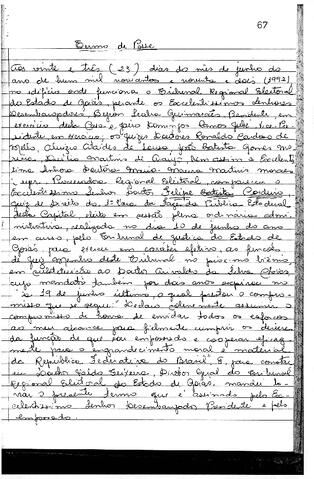 67
Termo de Posse
Aos vinte e três (23) dias do mês de junho do
ano de hum mil novecentos e noventa e dois (1992),
no edifício onde funciona o Tribunal Regional Eleitoral
do Estado de Goiás, perante os Excelentíssimos Senhores
Desembargadores, Byron Seabra Guimarães Presidente, em
exercício desta Casa e Jairo Domingos Ramos Jubé, Vice-Pre-
sidente em
Mello, Aluízio de Sousa, João Batista Gomes Mo-
reira, Martins de Araújo, bem assim a Excelen-
tíssima Senhora Doutora Maura Martins Moraes
Procuradora Regional Eleitoral, compareceu o
Excelentíssimo Senhor Doutor Felipe Batista Cordeiro
Juiz de Direito da 1ª Vara da Fazenda Pública Estadual
desta Capital eleito em sessão plena ordinária admi-
nistrativa, realizada no dia 10 de junho do ano
em curso pelo Tribunal de Justiça do Estado de
Goiás, para exercer em caráter efetivo, as funções
de Juiz Membro deste Tribunal no próximo biênio,
em substituição ao Doutor da Silva
cujo mandato também por dois anos expirou no
19 de junho último, o qual prestou o compro-
misso que se segue: Declaro solenemente assumir o
compromisso de honra de envidar todos os esforços
ao meu alcance para fielmente cumprir os deveres
da função de que sou empossado e cooperar eficaz-
mente para o engrandecimento moral e material
da República Federativa do Brasil. E, para constar
eu Doutor Teixeira, Diretor Geral do Tribunal
Regional Eleitoral do Estado de Goiás, mandei la-
vrar o presente termo que é assinado pelo Ex-
celentíssimo Senhor Desembargador Presidente e pelo
empossado.